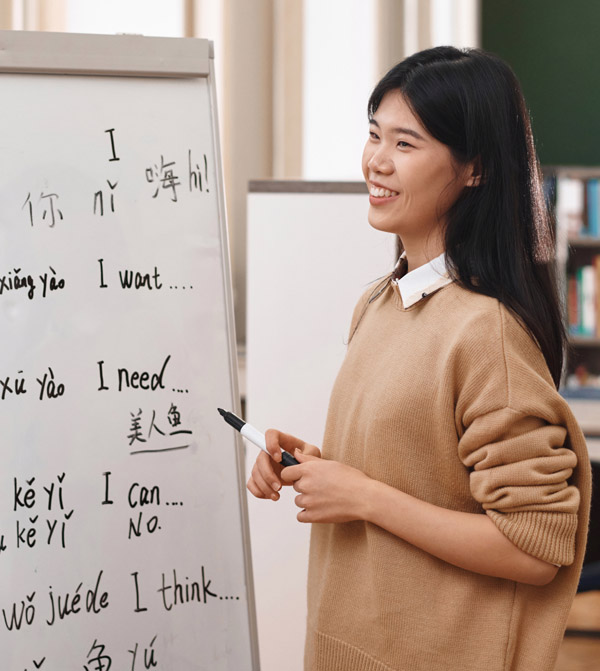 I
你 nǐ 嗨 hì!
xiǎng yào I want ....
xū yào I need ...
美人鱼
kě yǐ I can ....
kě yǐ No.
wǒ juéde I think ....
鱼 yú